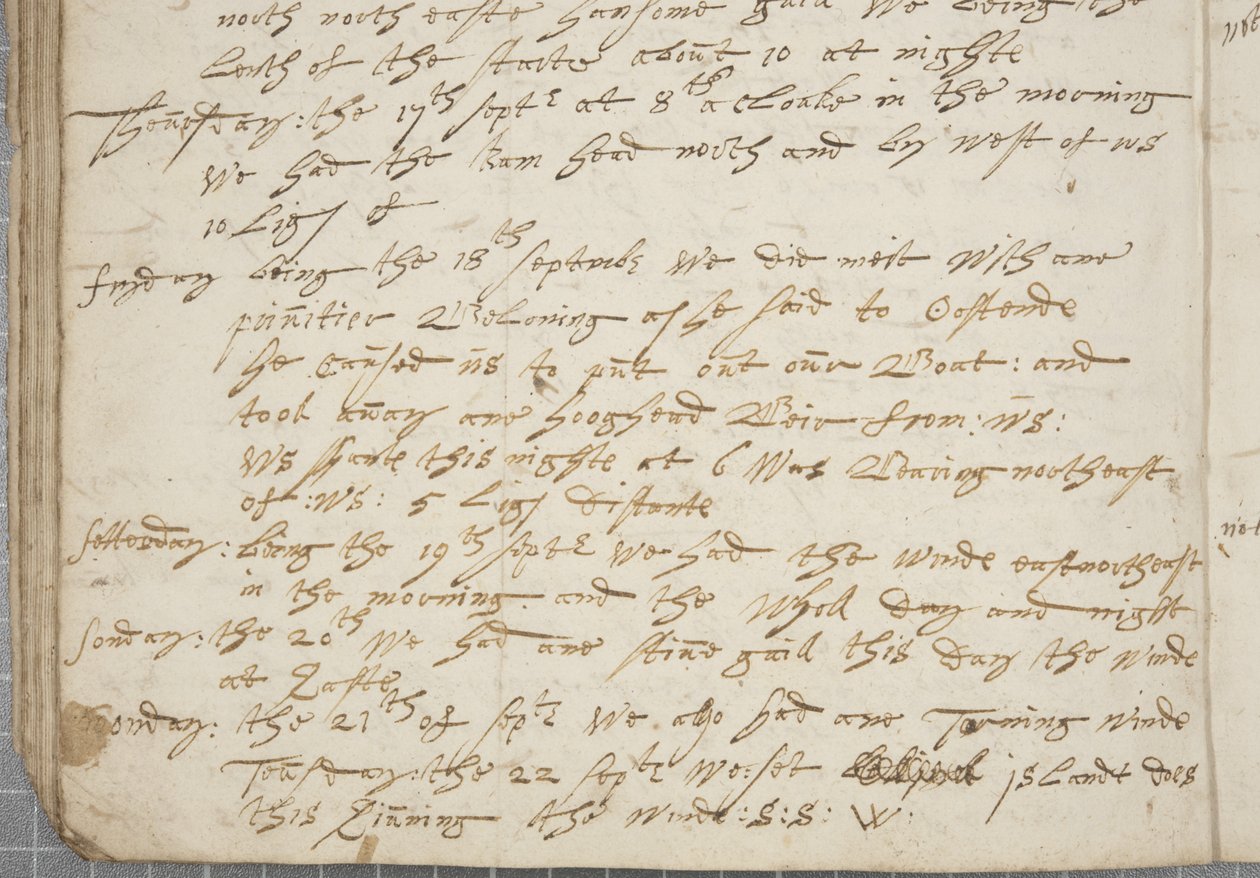 north north easte hansome gaill We being the
lenth of the starte about 10 at nighte
Theursday: the 17th septr at 8th a cloake in the morning
We had the Ram head north and by west of ws
10 Ligs of
fryday being the 18th septmbr We did meit With ane
privitier Beloning as he said to Oostende
he caused us to put out our Boat: and
took away ane hooghead Beir from: us:
this nighte at 6 Was Bearing northeast
of: ws: 5 Ligs distante
setterday: being the 19th septr We had the winde eastnortheast
in the morning and the Wholl day and night
sonday: the 20th We had ane stive gaill this day the winde
at Easte
moonday: the 21th of septr We also had ane Torning winde
Teusday: the 22 septr We: set islandt does
this Eivning the winde: S: S: W:
not
not